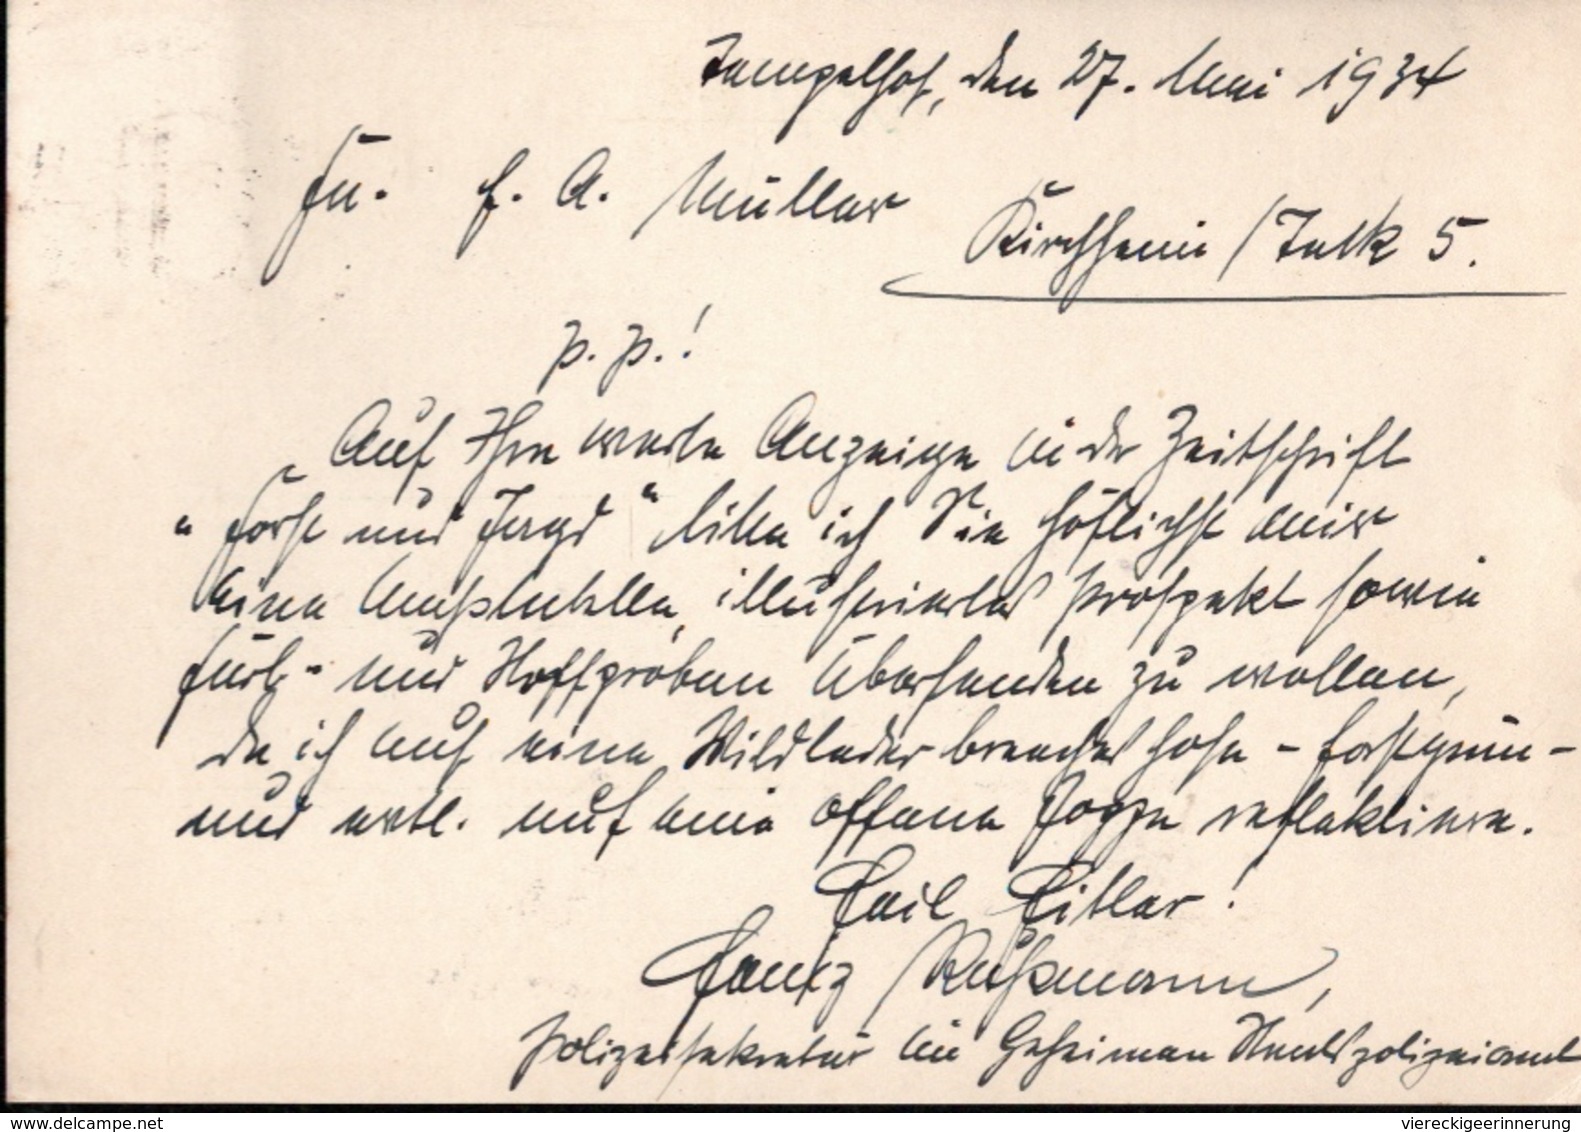 Tempelhof, den 27. Mai 1934
Fa. E. A. Müller
Kirchheim / Teck 5.
p. p.!
Auf Ihre werte Anzeige in der Zeitschrift
"Forst und Jagd" bitte ich Sie höflichst mir
eine Maßtabelle, illustriertes Prospekt sowie
Farb- und Stoffproben übersenden zu wollen,
da ich auf eine Wildleder breeches hose - forstgrün -
und evtl. auf eine offene Joppe reflektiere.
Heil Hitler!
Rußmann,
Polizeisekretär im Geheimen Staatspolizeiamt
delcampe.net
viereckigeerinnerung